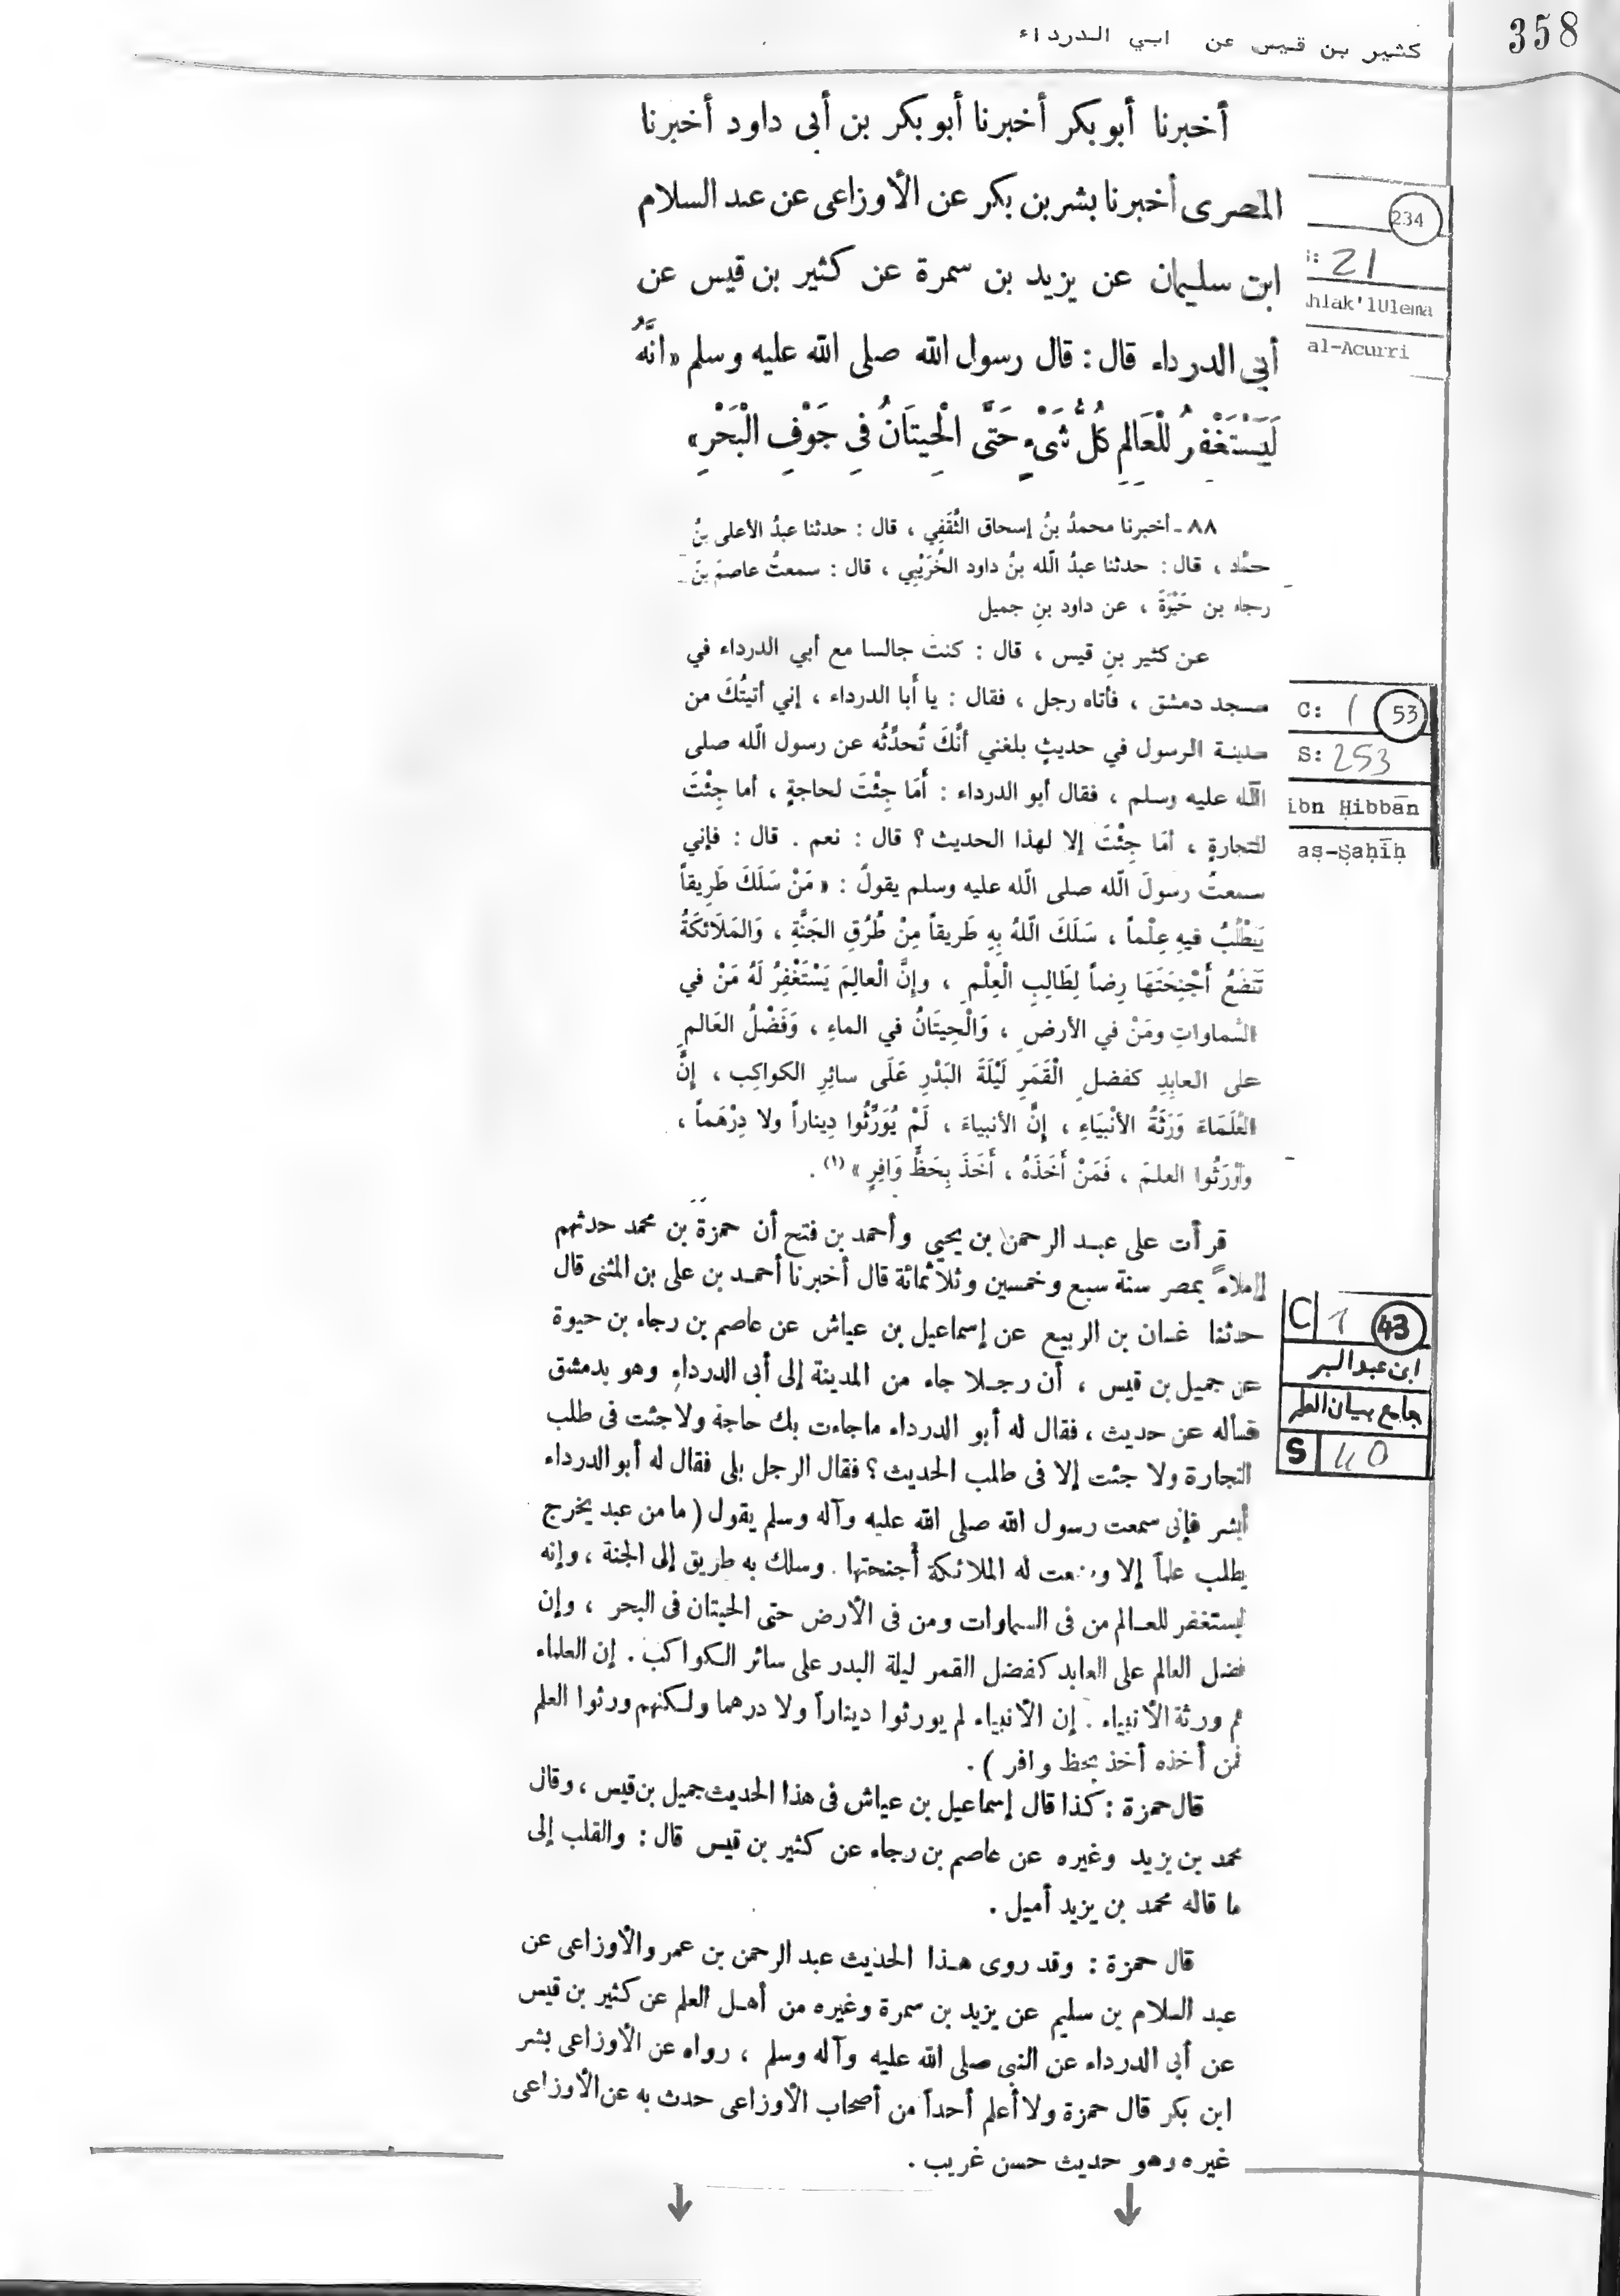 358
كثير بن قيس عن ابي الدرداء
أخبرنا أبو بكر أخبرنا أبو بكر بن أبى داود أخبرنا
المصرى أخبرنا بشر بن بكر عن الأوزاعى عن عبد السلام
ابن سليمان عن يزيد بن سمرة عن كثير بن قيس عن
أبى الدرداء قال : قال رسول الله صلى الله عليه وسلم « انَّهُ
لَيَسْتَغْفِرُ لِلْعَالِمِ كُلُّ شَىْءٍ حَتَّى الْحِيتَانُ فِى جَوْفِ الْبَحْرِ »
234
S: 21
Ahlak'lUlema
al-Acurri
٨٨ ـ أخبرنا محمدُ بنُ إسحاق الثَّقَفِي ، قال : حدثنا عبدُ الأعلى بنُ
حمَّاد ، قال : حدثنا عبدُ الله بنُ داود الخُرَيْبِي ، قال : سمعتُ عاصمَ بنَ
رجاء بن حَيْوَةَ ، عن داود بنِ جميل
عن كثير بنِ قيس ، قال : كنت جالسا مع أبي الدرداء في
مسجد دمشق ، فأتاه رجل ، فقال : يا أبا الدرداء ، إني أتيتُكَ من
مدينة الرسول في حديثٍ بلغني أنَّكَ تُحدِّثُه عن رسول الله صلى
الله عليه وسلم ، فقال أبو الدرداء : أَمَا جِئْتَ لحاجةٍ ، أما جِئْتَ
لتجارةٍ ، أمَا جِئْتَ إلا لهذا الحديث ؟ قال : نعم . قال : فإني
سمعتُ رسولَ الله صلى الله عليه وسلم يقولُ : « مَنْ سَلَكَ طَرِيقاً
يَطْلُبُ فيهِ عِلْماً ، سَلَكَ اللهُ بِهِ طَريقاً مِنْ طُرُقِ الجَنَّةِ ، وَالمَلَائكَةُ
تَضَعُ أَجْنِحَتَهَا رِضاً لِطَالِبِ الْعِلْمِ ، وإِنَّ الْعالِمَ يَسْتَغْفِرُ لَهُ مَنْ في
السَّماواتِ ومَنْ في الأرضِ ، وَالْحِيتَانُ في الماءِ ، وَفَضْلُ العَالمِ
على العابِدِ كفضلِ الْقَمَرِ لَيْلَةَ البَدْرِ عَلَى سائِرِ الكواكِب ، إِنَّ
العُلَمَاءَ وَرَثَةُ الأنْبَيَاءِ ، إِنَّ الأنبياءَ ، لَمْ يُوَرِّثُوا دِيناراً ولا دِرْهَماً ،
وَأَوْرَثُوا العلمَ ، فَمَنْ أَخَذَهُ ، أَخَذَ بِحَظٍّ وَافِرٍ » (١) .
C: 1 53
S: 253
ibn Ḥibbān
aṣ-Ṣaḥīḥ
قرأت على عبـد الرحمن بن يحيى وأحمد بن فتح أن حمزة بن محمد حدثهم
إملاءً بمصر سنة سبع وخمسين وثلاثمائة قال أخبرنا أحمـد بن على بن المثنى قال
حدثنا غسان بن الربيع عن إسماعيل بن عياش عن عاصم بن رجاء بن حيوة
عن جميل بن قيس ، أن رجـلا جاء من المدينة إلى أبى الدرداء وهو بدمشق
فسأله عن حديث ، فقال له أبو الدرداء ماجاءت بك حاجة ولا جئت فى طلب
التجارة ولا جئت إلا فى طلب الحديث ؟ فقال الرجل بلى فقال له أبو الدرداء
أبشر فإنى سمعت رسول الله صلى الله عليه وآله وسلم يقول ( ما من عبد يخرج
يطلب علماً إلا وضعت له الملائكة أجنحتها . وسلك به طريق إلى الجنة ، وإنه
ليستغفر للعـالم من فى السماوات ومن فى الأرض حتى الحيتان فى البحر ، وإن
فضل العالم على العابد كفضل القمر ليلة البدر على سائر الـكواكب . إن العلماء
هم ورثة الأنبياء . إن الأنبياء لم يورثوا ديناراً ولا درهما ولـكنهم ورثوا العلم
فمن أخذه أخذ بحظ وافر ) .
C 1 43
ابن عبد البر
جامع بيان العلم
S 40
قال حمزة : كذا قال إسماعيل بن عياش فى هذا الحديث جميل بن قيس ، وقال
محمد بن يزيد وغيره عن عاصم بن رجاء عن كثير بن قيس قال : والقلب إلى
ما قاله محمد بن يزيد أميل .
قال حمزة : وقد روى هـذا الحديث عبد الرحمن بن عمر والأوزاعى عن
عبد السلام بن سليم عن يزيد بن سمرة وغيره من أهـل العلم عن كثير بن قيس
عن أبى الدرداء عن النبى صلى الله عليه وآله وسلم ، رواه عن الأوزاعى بشر
ابن بكر قال حمزة ولا أعلم أحداً من أصحاب الأوزاعى حدث به عن الأوزاعى
غيره وهو حديث حسن غريب .